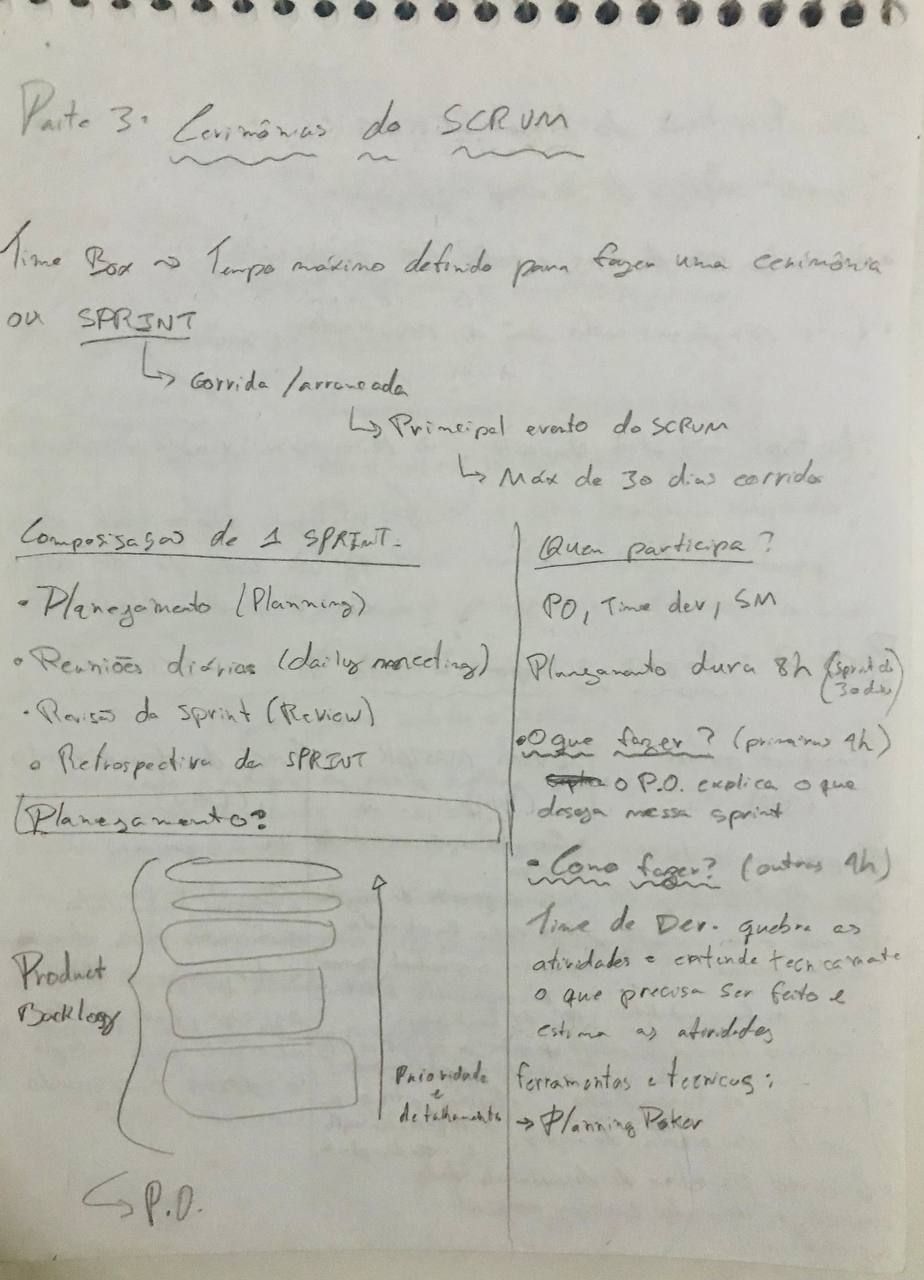 Parte 3: Cerimônias do SCRUM
Time Box ~> Tempo máximo definido para fazer uma cerimônia
ou SPRINT
↳ Corrida/arrancada
↳ Principal evento do SCRUM
↳ Máx de 30 dias corridos
Composisaçao de 1 SPRINT.
• Planejamento (Planning)
• Reuniões diárias (daily meeting)
• Revisão da sprint (Review)
• Retrospectiva da SPRINT
Planejamento?
Product
Backlog
Prioridade
e
detalhamento
↳ P.O.
Quem participa?
PO, Time dev, SM
Planejamento dura 8h (sprint de
30 dias)
• O que fazer? (primeiras 4h)
o P.O. explica o que
deseja nessa sprint
• Como fazer? (outras 4h)
Time de Dev. quebra as
atividades e entende tecnicamente
o que precisa ser feito e
estima as atividades
ferramentas e tecnicas:
→ Planning Poker